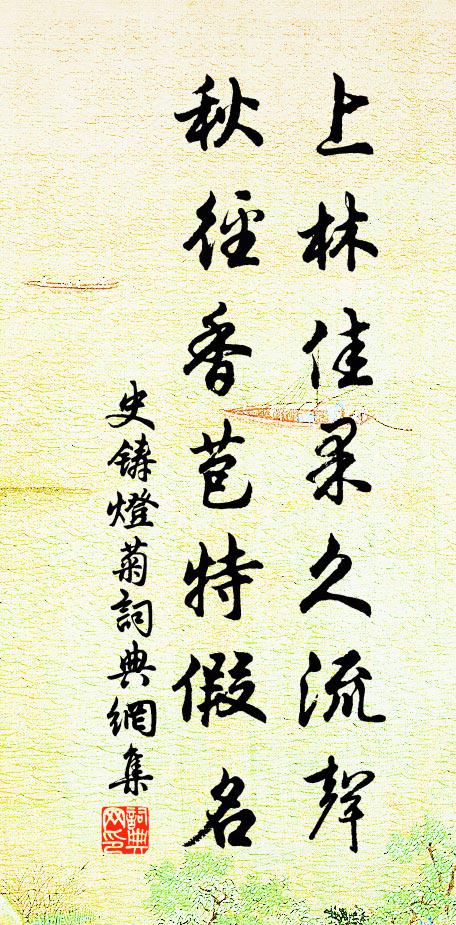 上林佳果久流聲
秋徑香苞特假名
史鑄燈菊詞典網集
詞典網印